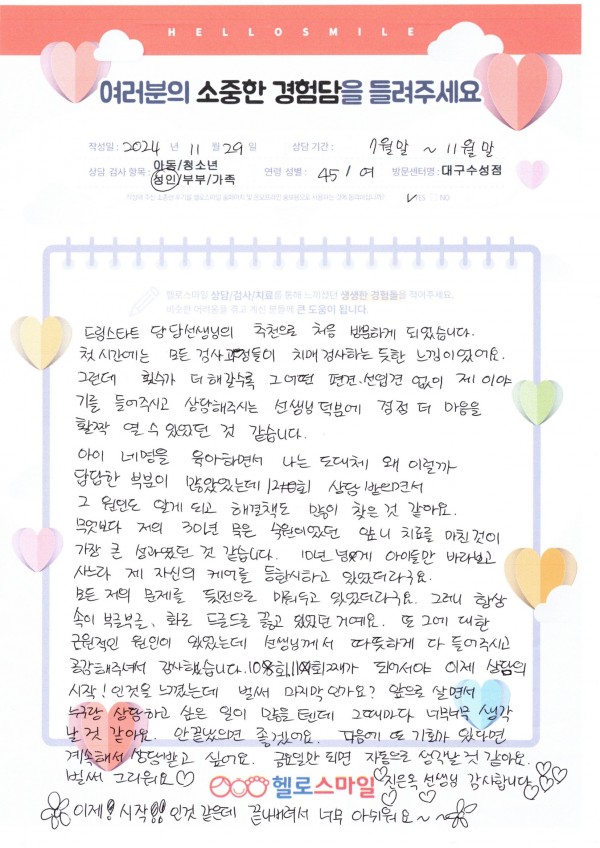 HELLOSMILE
여러분의 소중한 경험담을 들려주세요
작성일 : 2024 년 11 월 29 일 상담 기간 : 7월말 ~ 11월말
상담 검사 항목 : 아동/청소년 성인/부부/가족 연령 성별 : 45 / 여 방문센터명 : 대구수성점
YES NO
헬로스마일 상담/검사/치료를 통해 느끼셨던 생생한 경험들을 적어주세요.
비슷한 어려움을 겪고 계신 분들께 큰 도움이 됩니다.
드림스타트 담당선생님의 추천으로 처음 방문하게 되었습니다.
첫 시간에는 모든 검사과정들이 치매검사하는 듯한 느낌이었어요.
그런데 횟수가 더해갈수록 그 어떤 편견·선입견 없이 제 이야
기를 들어주시고 상담해주시는 선생님 덕분에 점점 더 마음을
활짝 열 수 있었던 것 같습니다.
아이 네명을 육아하면서 나는 도대체 왜 이럴까
답답한 부분이 많았었는데 12회 상담 받으면서
그 원인도 알게 되고 해결책도 많이 찾은 것 같아요.
무엇보다 저의 30년 묵은 숙원이었던 앞니 치료를 마친것이
가장 큰 성과였던 것 같습니다. 10년 넘게 아이들만 바라보고
사느라 제 자신의 케어를 등한시하고 있었더라구요.
모든 저의 문제를 뒷전으로 미뤄두고 있었더라구요. 그러니 항상
속이 부글부글, 화로 드글드글 끓고 있었던 거예요. 또 그에 대한
근원적인 원인이 있었는데 선생님께서 따뜻하게 다 들어주시고
공감해주셔서 감사했습니다. 10회, 11회차가 되어서야 이제 상담의
시작! 인것을 느꼈는데 벌써 마지막인가요? 앞으로 살면서
누구랑 상담하고 싶은 일이 많을 텐데 그때마다 너무너무 생각
날 것 같아요. 안끝났으면 좋겠어요. 다음에 또 기회가 있다면
계속해서 상담받고 싶어요. 금요일만 되면 자동으로 생각날 것 같아요.
벌써 그리워요♡ 헬로스마일 지은옥 선생님 감사합니다
이제! 시작!! 인것 같은데 끝나버려서 너무 아쉬워요~~